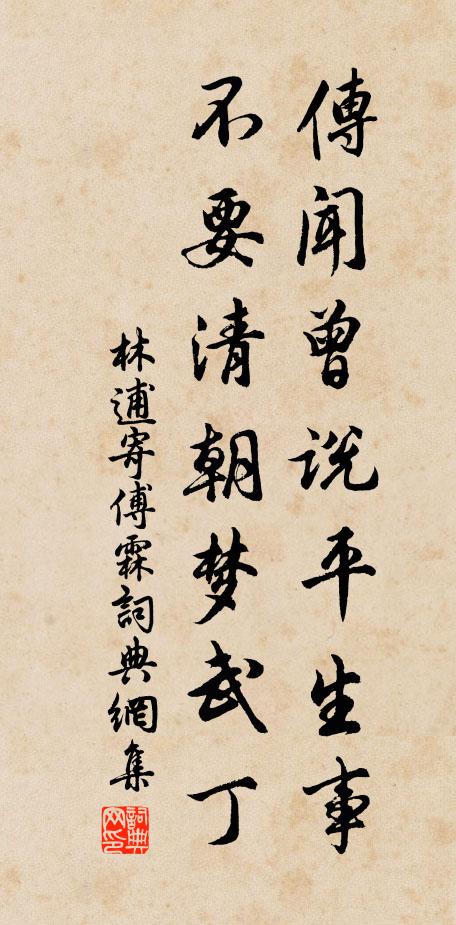 傅闻曾说平生事
不要清朝梦武丁
林逋寄傅霖詞典網集
詞典网印